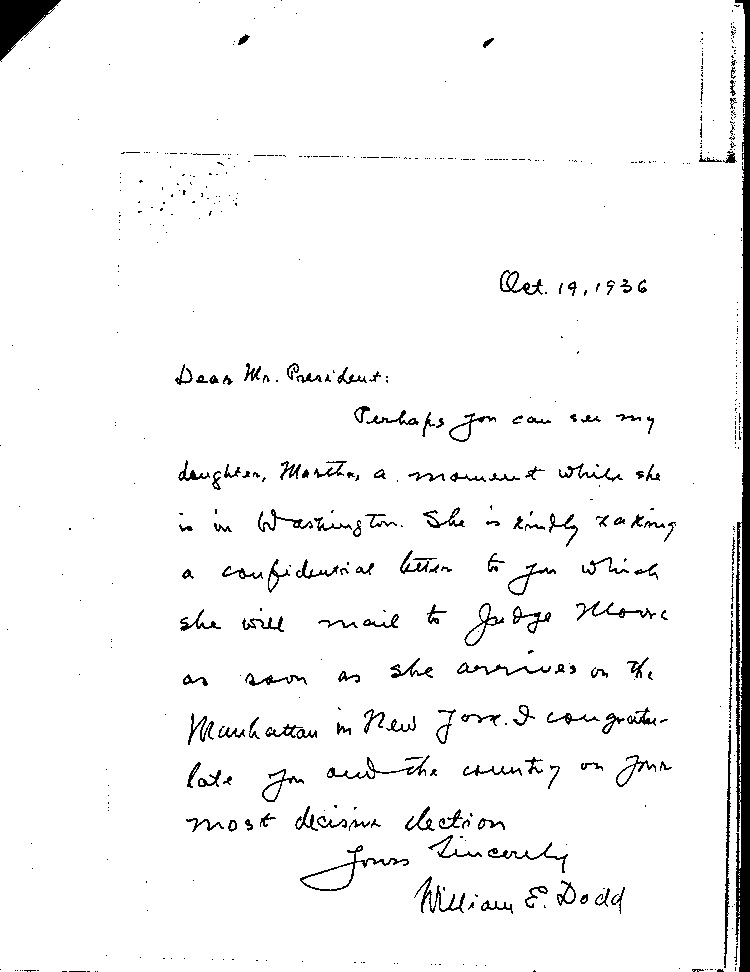 Oct. 19, 1936
Dear Mr. President:
Perhaps you can see my
daughter, Martha, a moment while she
is in Washington. She is kindly taking
a confidential letter to you which
she will mail to Judge Moore
as soon as she arrives on the
Manhattan in New York. I congratu-
late you and the country on your
most decisive election
Yours Sincerely
William E. Dodd